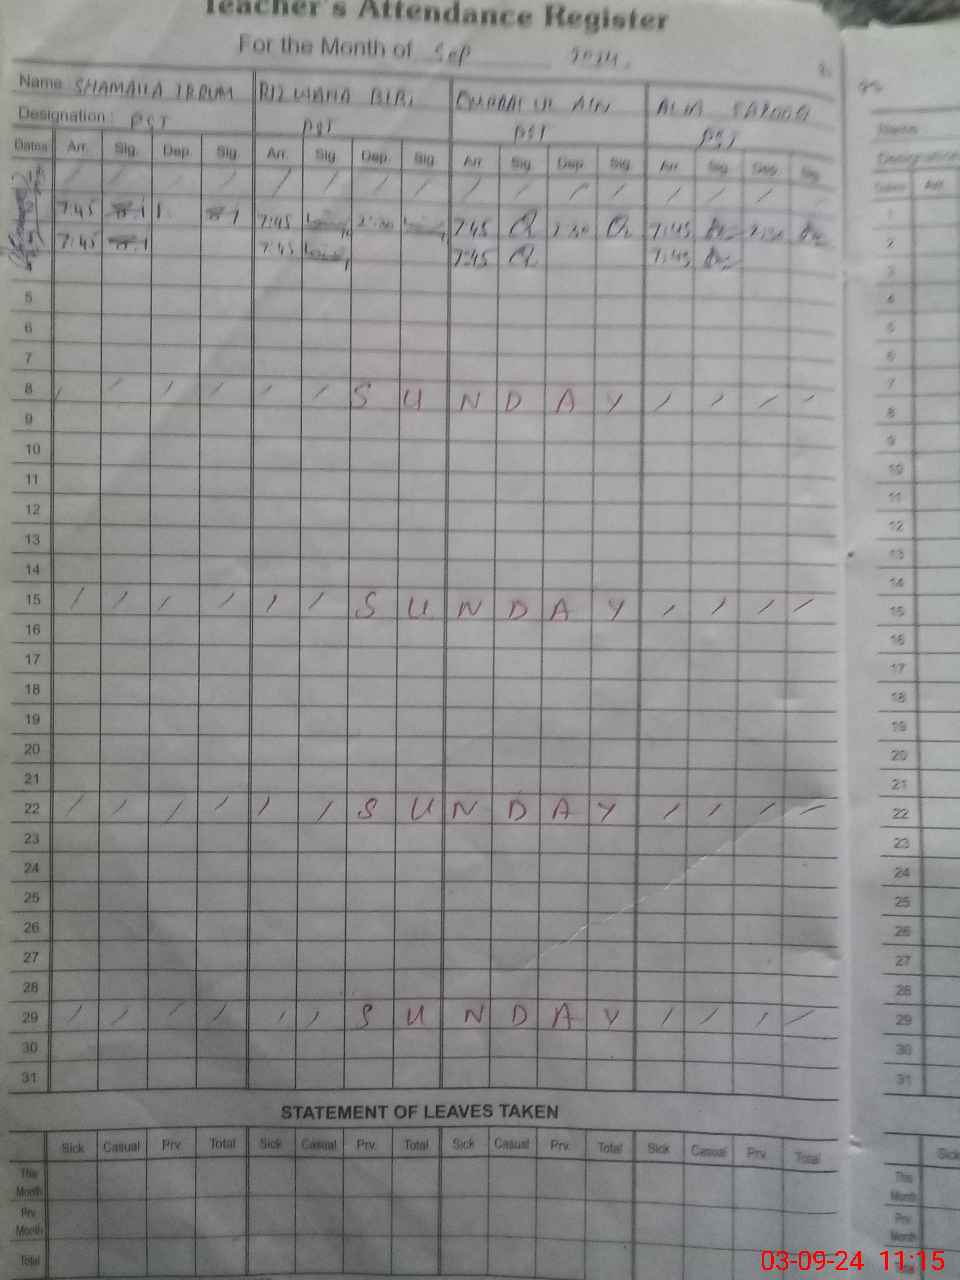 Teacher's Attendance Register
For the Month of Sep
Name SHAMAILA IRRUM RIZWANA BIBI QURRAT UL AIN ALIA
Designation : PST PST PST PST
Dates Arr. Sig. Dep. Sig. Arr. Sig. Dep. Sig. Arr. Sig. Dep. Sig. Arr. Sig. Dep. Sig.
7:45 7:45 7:45 7:45
7:45 7:45 7:45 7:45
5
6
7
8 SUNDAY
9
10
11
12
13
14
15 SUNDAY
16
17
18
19
20
21
22 SUNDAY
23
24
25
26
27
28
29 SUNDAY
30
31
STATEMENT OF LEAVES TAKEN
Sick Casual Prv. Total Sick Casual Prv. Total Sick Casual Prv. Total Sick Casual Prv. Total
This Month
Prv. Month
Total
Name
Designation
Arr.
1
2
3
4
5
6
7
8
9
10
11
12
13
14
15
16
17
18
19
20
21
22
23
24
25
26
27
28
29
30
31
Sick
This Month
Prv. Month
03-09-24 11:15